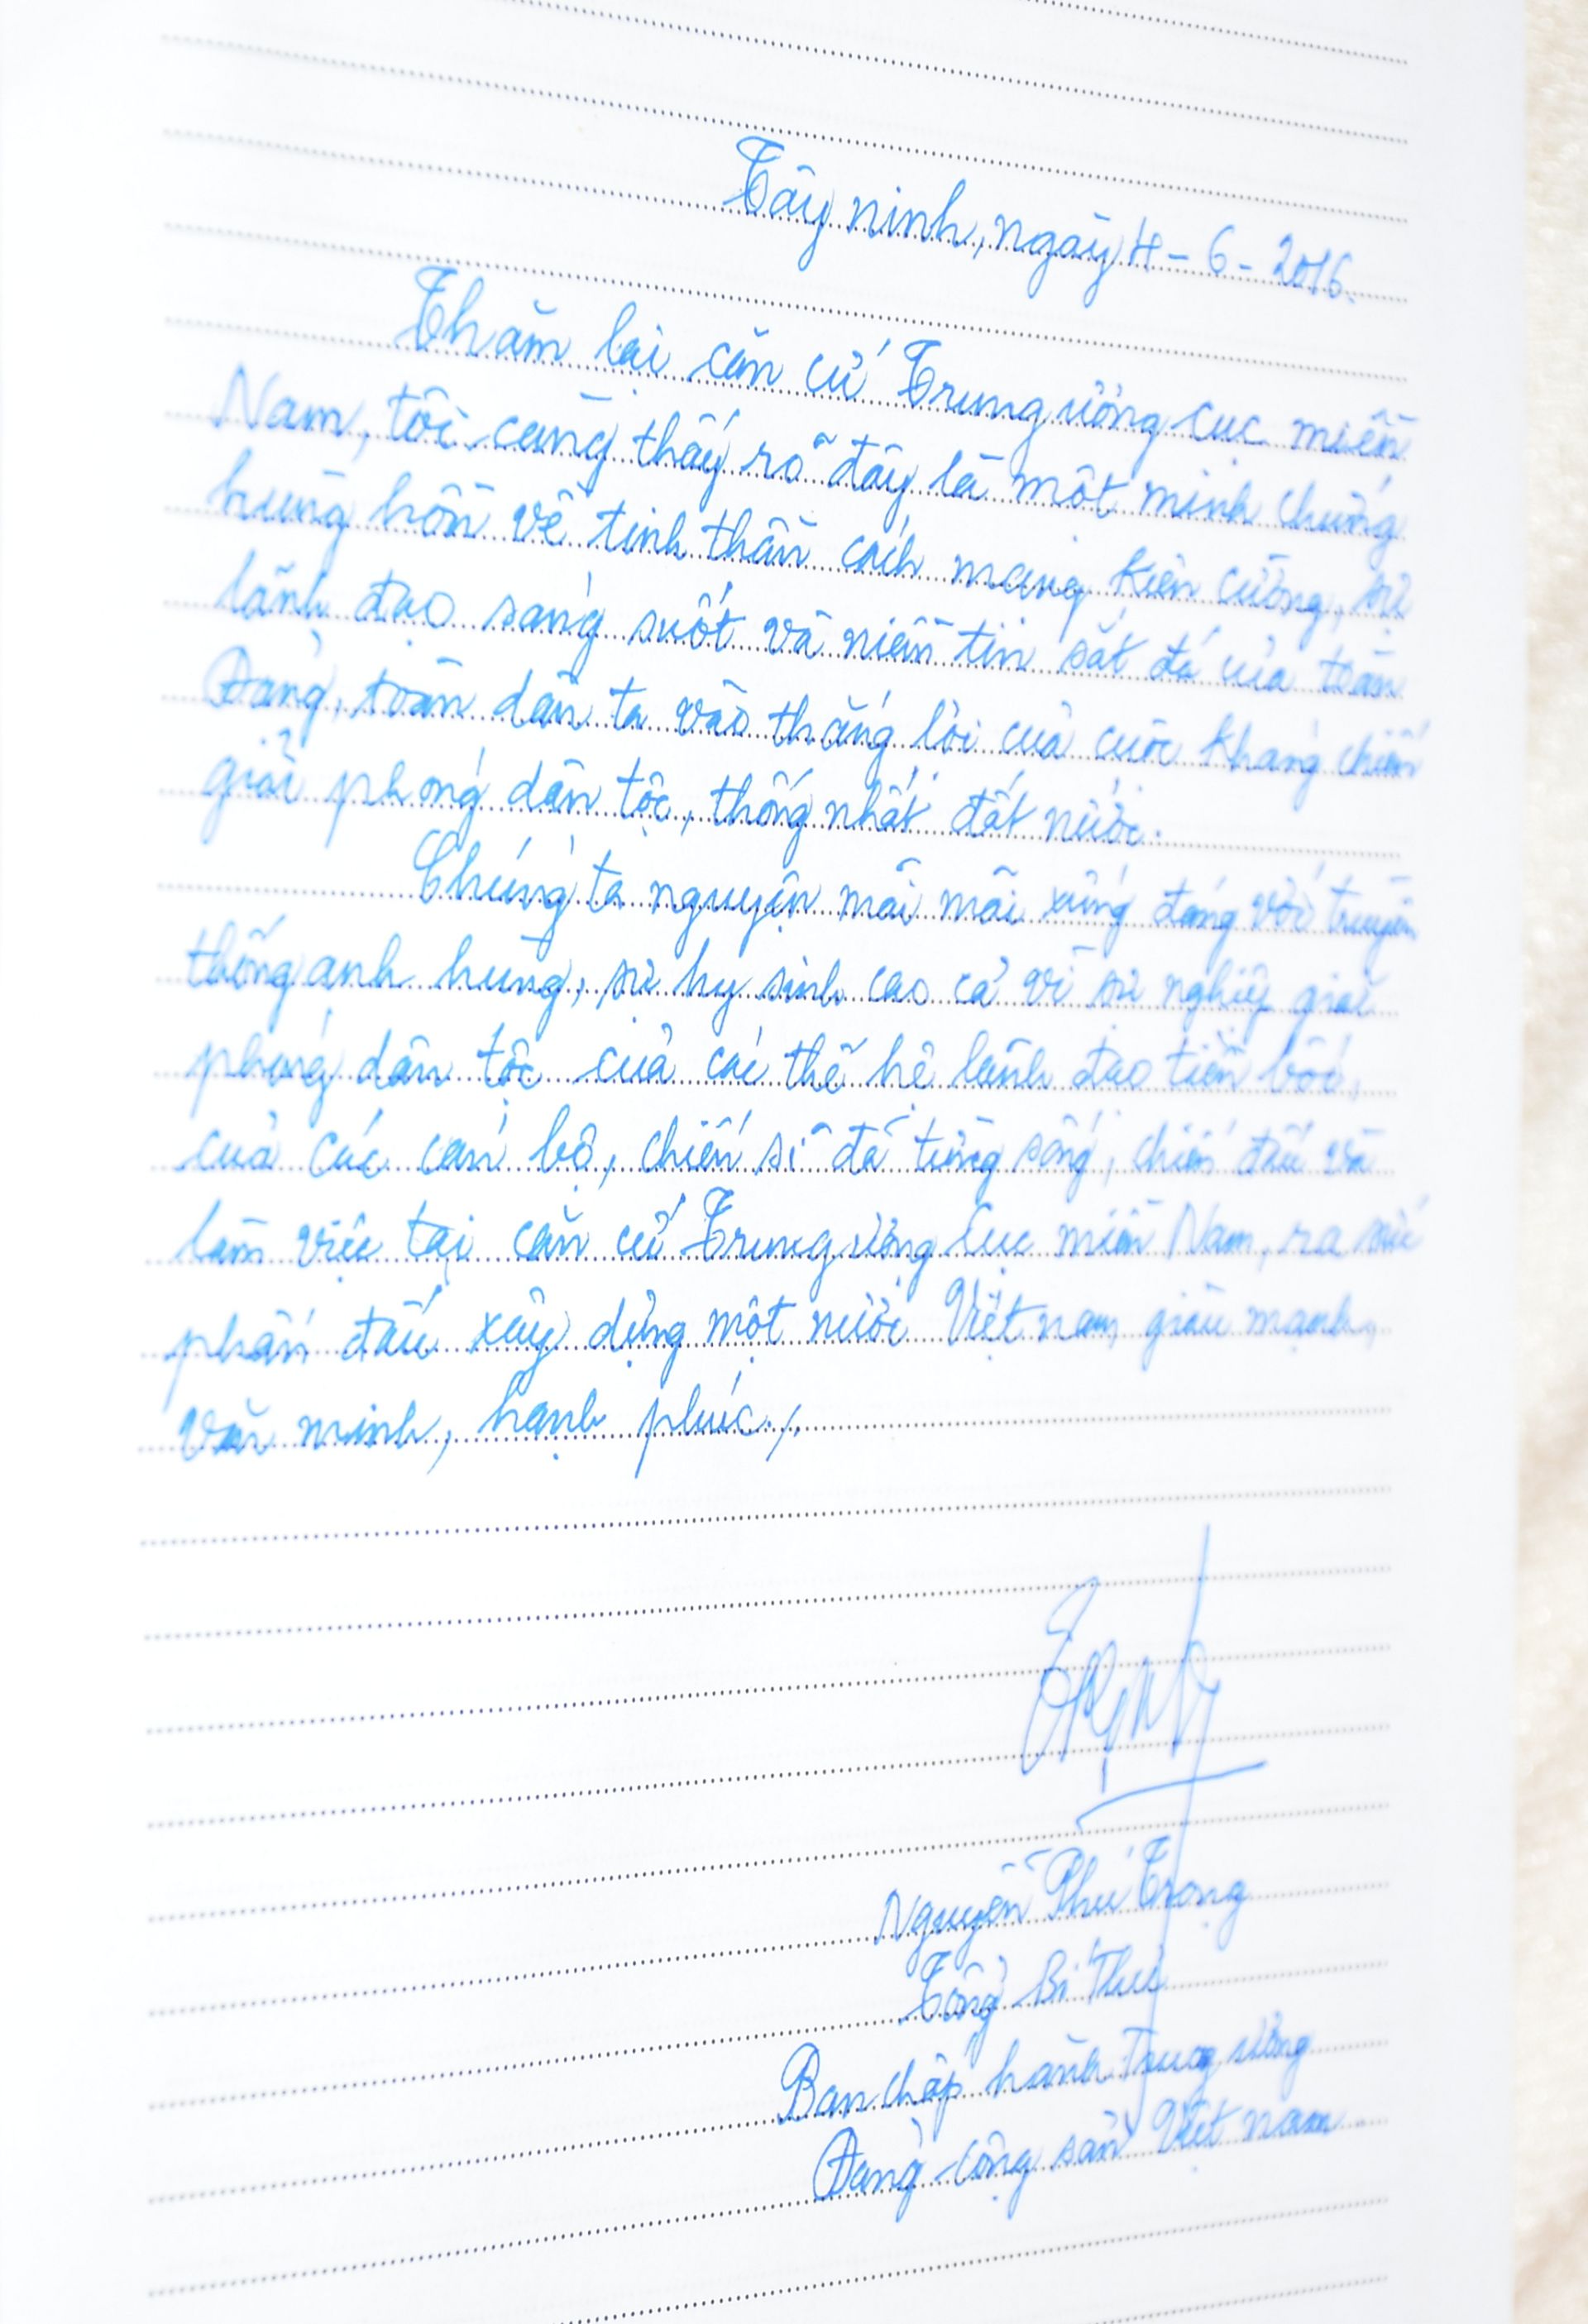 Tây ninh, ngày 4-6-2016.
Thăm lại căn cứ Trung ương cục miền
Nam, tôi càng thấy rõ đây là một minh chứng
hùng hồn về tinh thần cách mạng kiên cường, sự
lãnh đạo sáng suốt và niềm tin sắt đá của toàn
Đảng, toàn dân ta vào thắng lợi của cuộc kháng chiến
giải phóng dân tộc, thống nhất đất nước.
Chúng ta nguyện mãi mãi xứng đáng với truyền
thống anh hùng, sự hy sinh cao cả vì sự nghiệp giải
phóng dân tộc của các thế hệ lãnh đạo tiền bối,
của các cán bộ, chiến sĩ đã từng sống, chiến đấu và
làm việc tại căn cứ Trung ương Cục miền Nam, ra sức
phấn đấu xây dựng một nước Việt nam giàu mạnh,
văn minh, hạnh phúc./.
Nguyễn Phú Trọng
Tổng Bí Thư
Ban chấp hành Trung ương
Đảng cộng sản Việt nam